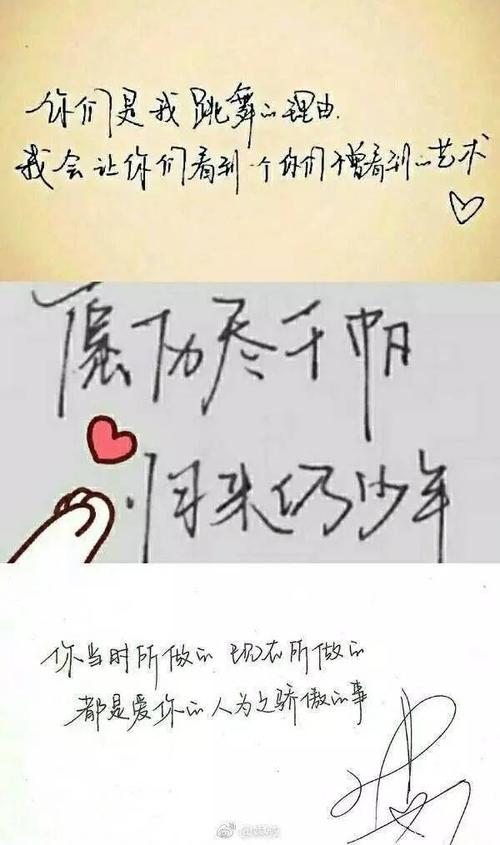 你们是我跳舞的理由.
我会让你们看到一个你们不曾看到的艺术
愿历尽千帆
归来仍少年
你当时所做的 现在所做的
都是爱你的人为之骄傲的事